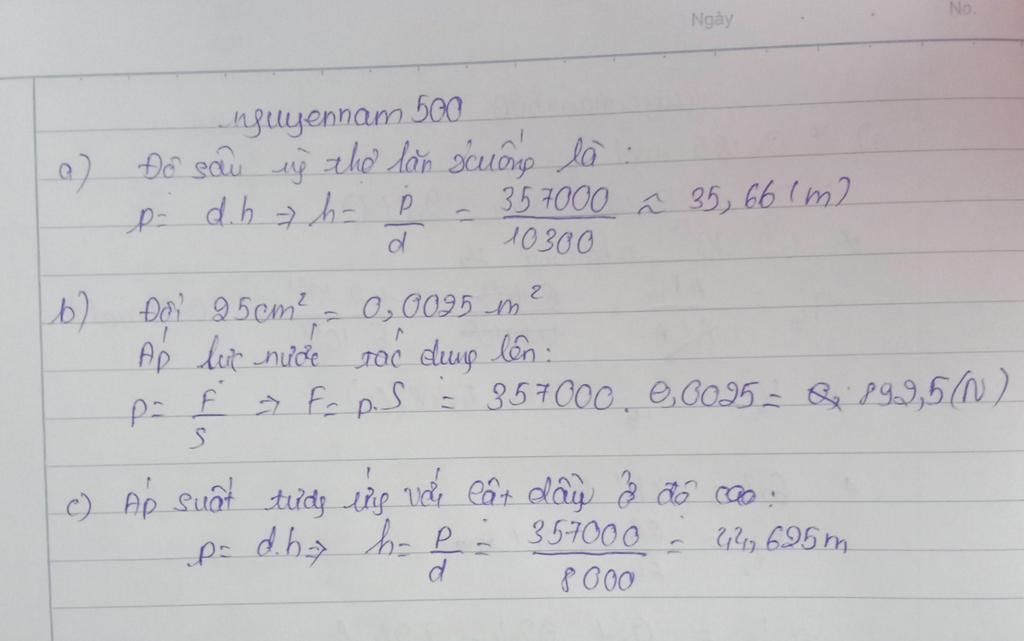 Ngày
No.
nguyennam 500
a) Độ sâu mà thợ lặn xuống là :
p = d.h => h = p/d = 357000/10300 ≈ 35,66 (m)
b) Đổi 25cm² = 0,0025 m²
Áp lực nước tác dụng lên:
p = F/S => F = p.S = 357000. 0,0025 = 892,5 (N)
c) Áp suất tương ứng với cột dầu ở độ cao:
p = d.h => h = p/d = 357000/8000 = 44,625m